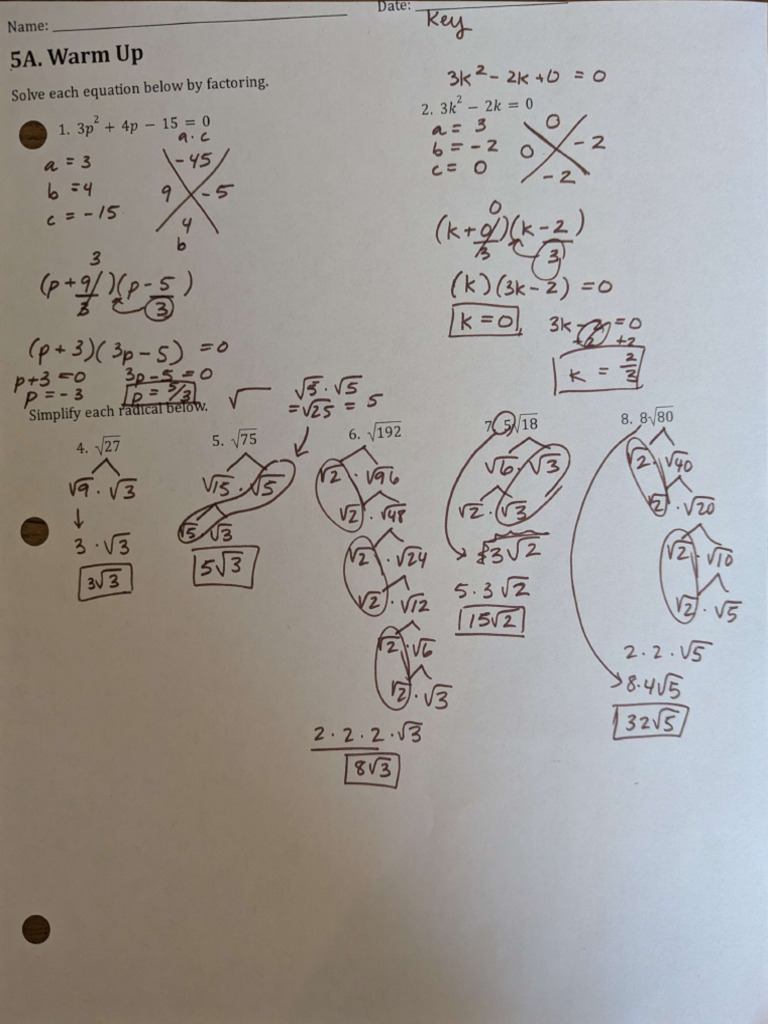 Name: Date: Key
5A. Warm Up
Solve each equation below by factoring.
1. 3p² + 4p − 15 = 0
a = 3
b = 4
c = −15
a · c
−45
9 −5
4
b
3
(p + 9/3)(p − 5/3)
(p + 3)(3p − 5) = 0
p+3 = 0 3p − 5 = 0
p = −3 p = 5/3
3k² − 2k + 0 = 0
2. 3k² − 2k = 0
a = 3
b = −2
c = 0
0
0 −2
−2
0
(k + 0/3)(k − 2/3)
(k)(3k − 2) = 0
k = 0
3k − 2 = 0
+2 +2
k = 2/3
Simplify each radical below.
√
√5 · √5
= √25 = 5
4. √27
√9 · √3
3 · √3
3√3
5. √75
√15 · √5
√5 √3
5√3
6. √192
√2 · √96
√2 · √48
√2 · √24
√2 · √12
√2 · √6
√2 · √3
2 · 2 · 2 · √3
8√3
7. 5√18
√6 · √3
√2 · √3
3√2
5 · 3√2
15√2
8. 8√80
√2 · √40
√2 · √20
√2 · √10
√2 · √5
2 · 2 · √5
8 · 4√5
32√5